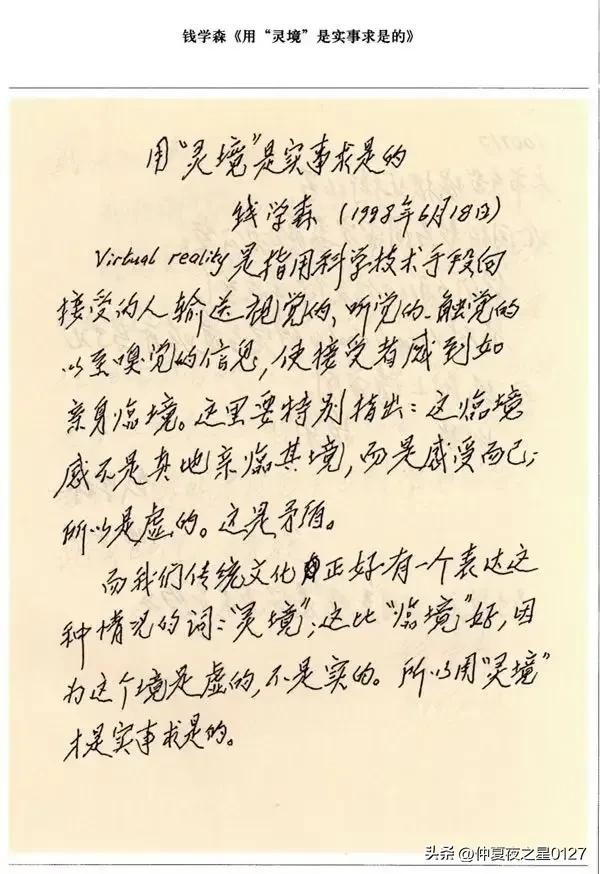 钱学森《用“灵境”是实事求是的》
用“灵境”是实事求是的
钱学森（1998年6月18日）
Virtual reality是指用科学技术手段向
接受的人输送视觉的、听觉的、触觉的
以至嗅觉的信息，使接受者感到如
亲身临境。这里要特别指出：这临境
感不是真地亲临其境，而是感受而已；
所以是虚的。这是矛盾。
而我们传统文化正好有一个表达这
种情况的词：“灵境”；这比“临境”好，因
为这个境是虚的，不是实的。所以用“灵境”
才是实事求是的。
头条@仲夏夜之星0127